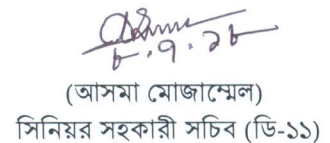 ৮.৭.১৮
(আসমা মোজাম্মেল)
সিনিয়র সহকারী সচিব (ডি-১১)